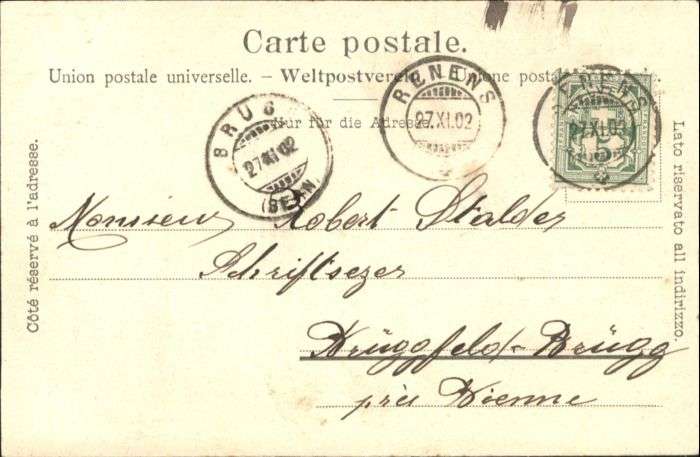 Carte postale.
Union postale universelle. – Weltpostverein. – Unione postale
Nur für die Adresse.
Côté réservé à l'adresse.
Lato riservato all indirizzo.
BRÜGG
27.XI.02
(BERN)
RENENS
27.XI.02
RENENS
27.XI.02
5
Monsieur Robert Stalder
Schriftsezer
Brüggfeld-Brügg
près Bienne